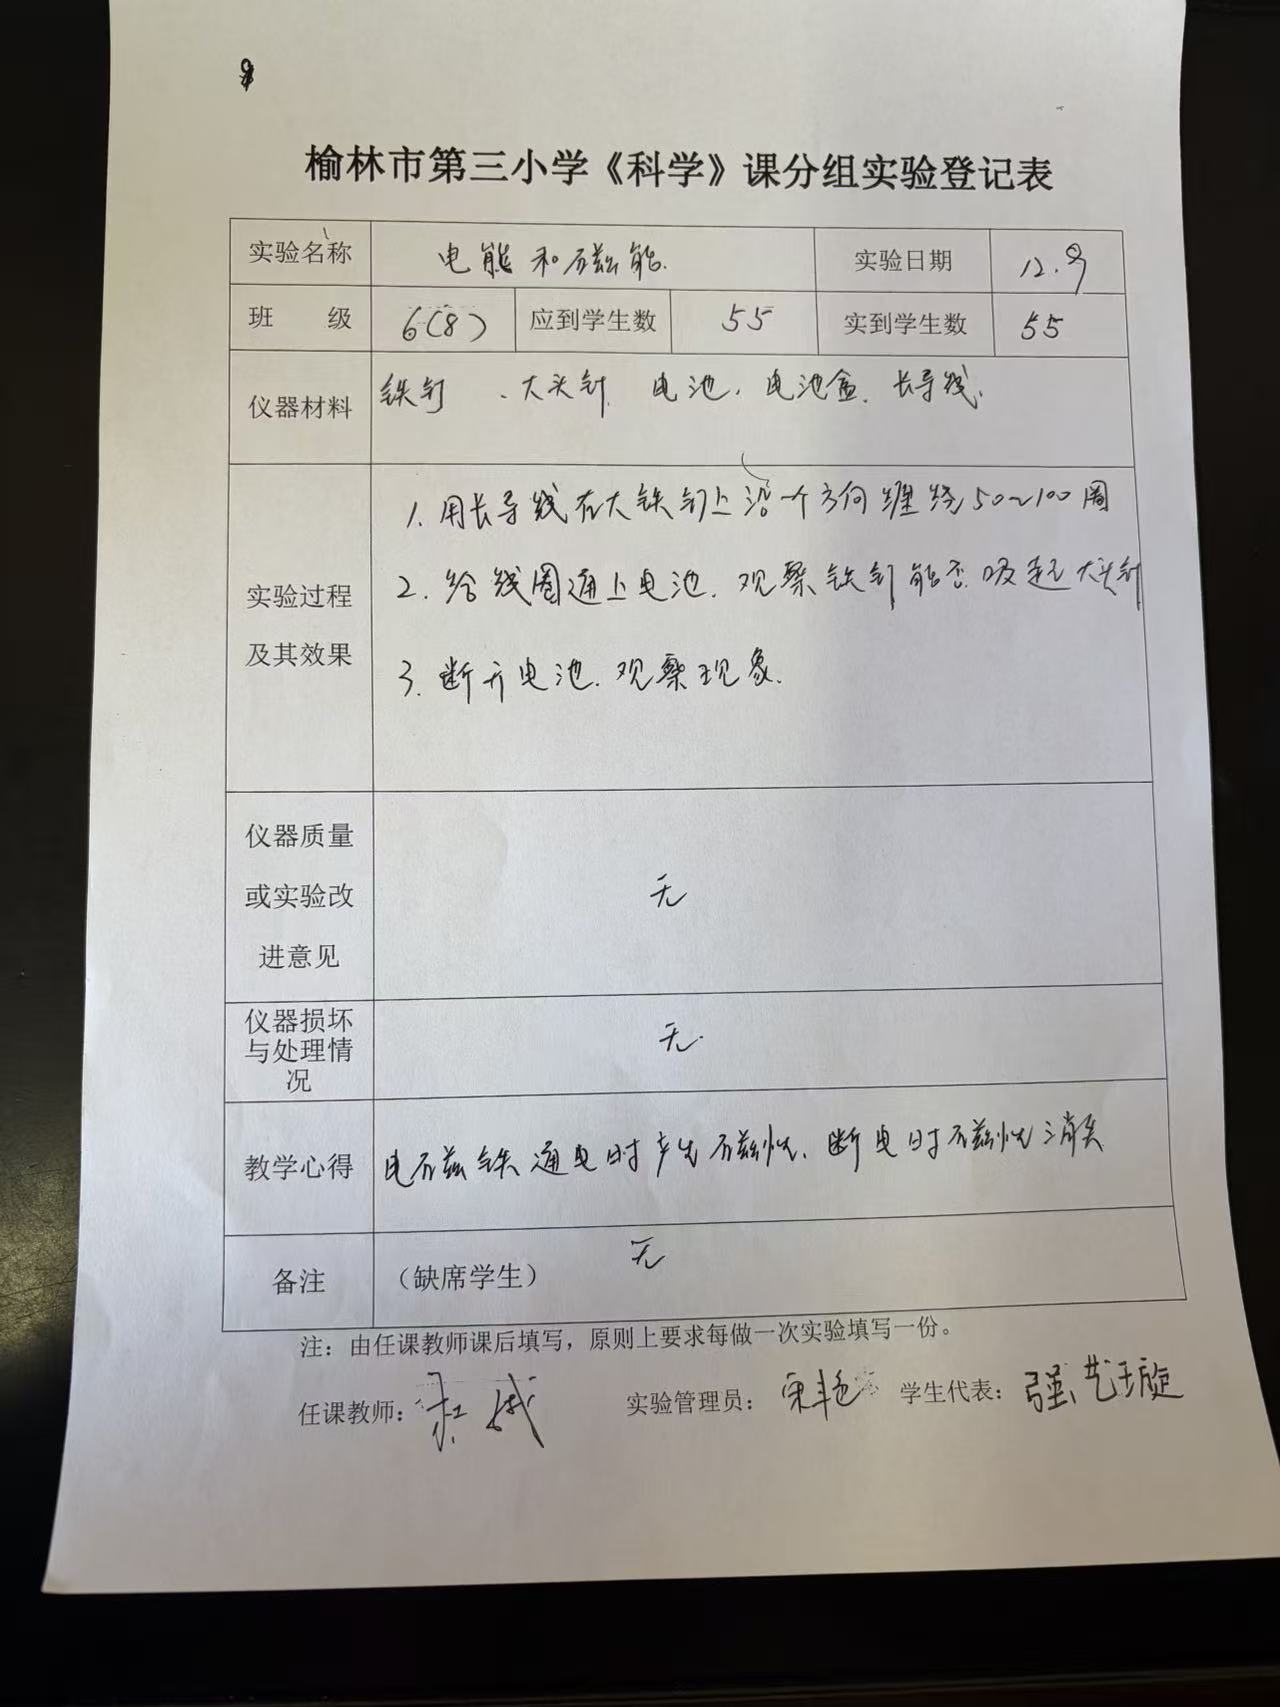 8
榆林市第三小学《科学》课分组实验登记表
实验名称 电能和磁能. 实验日期 12.9
班 级 6(8) 应到学生数 55 实到学生数 55
仪器材料 铁钉、大头针 电池、电池盒、长导线.
实验过程及其效果
1. 用长导线在大铁钉上沿一个方向缠绕50~100圈
2. 给线圈通上电池. 观察铁钉能否吸起大头针
3. 断开电池. 观察现象.
仪器质量或实验改进意见 无
仪器损坏与处理情况 无.
教学心得 电磁铁通电时产生磁性、断电时磁性消失
备注 (缺席学生) 无
注：由任课教师课后填写，原则上要求每做一次实验填写一份。
任课教师： 实验管理员： 学生代表：强艺璇